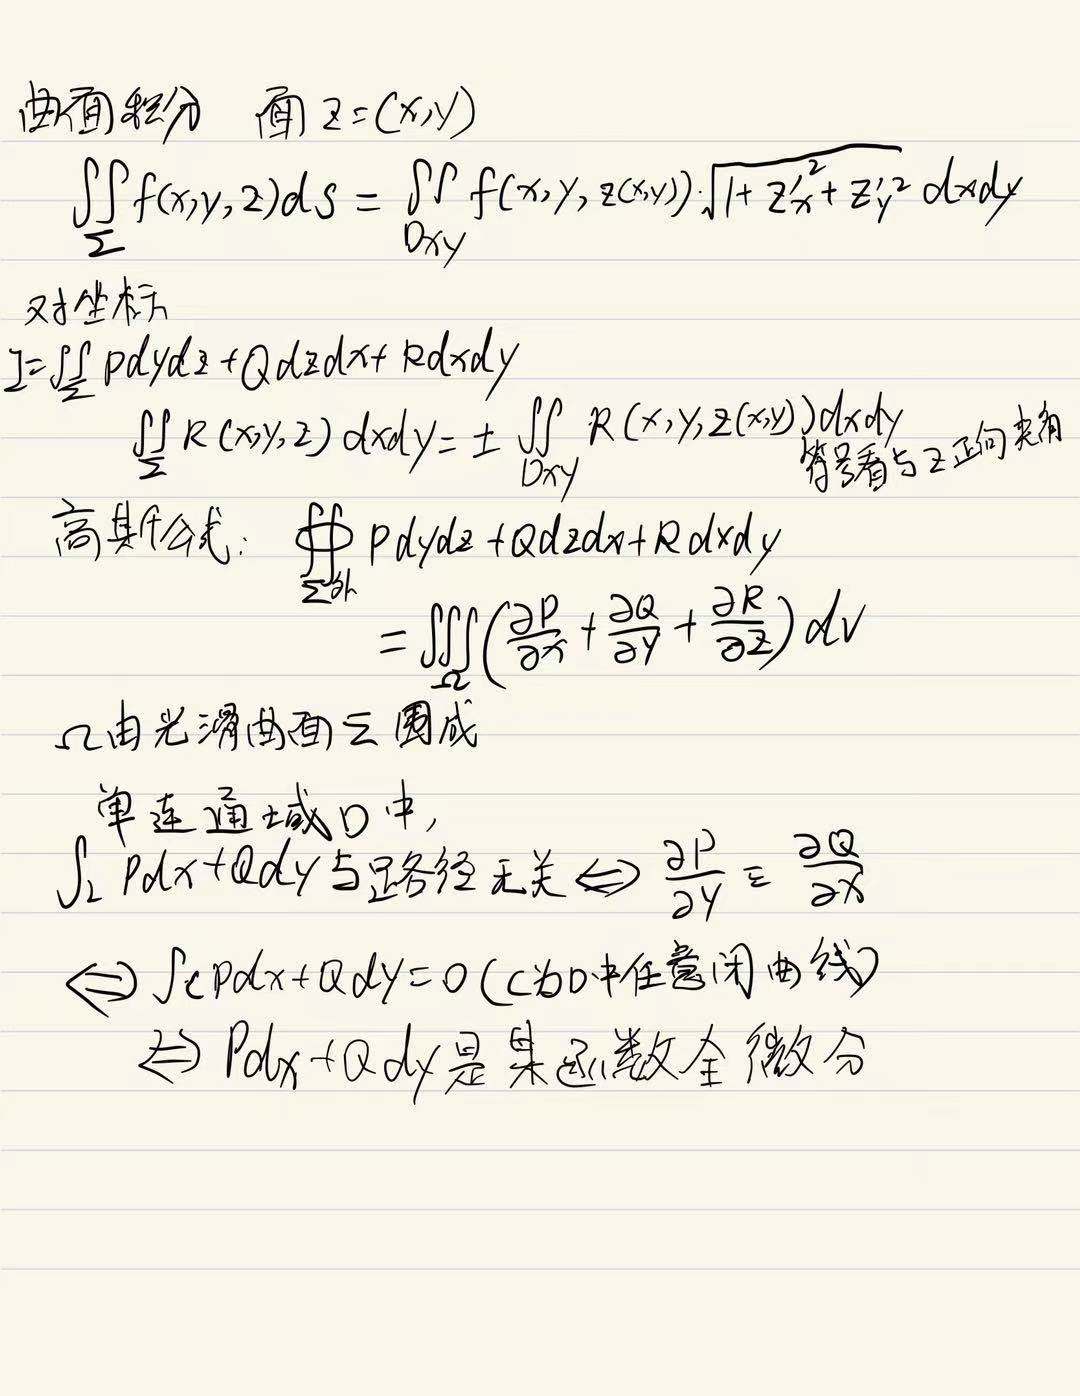 曲面积分 面 z=(x,y)
∬_Σ f(x,y,z)ds = ∬_Dxy f(x,y,z(x,y))·√(1+z'x²+z'y²) dxdy
对坐标
I=∬_Σ Pdydz+Qdzdx+Rdxdy
∬_Σ R(x,y,z)dxdy=± ∬_Dxy R(x,y,z(x,y))dxdy
符号看与z正向夹角
高其斤公式: ∯_Σ外 Pdydz+Qdzdx+Rdxdy
=∭_Ω(∂P/∂x+∂Q/∂y+∂R/∂z)dv
Ω由光滑曲面Σ围成
单连通域D中,
∫_L Pdx+Qdy与路径无关⇔ ∂P/∂y ≡ ∂Q/∂x
⇔ ∫_c Pdx+Qdy=0(C为D中任意闭曲线)
⇔ Pdx+Qdy是某函数全微分